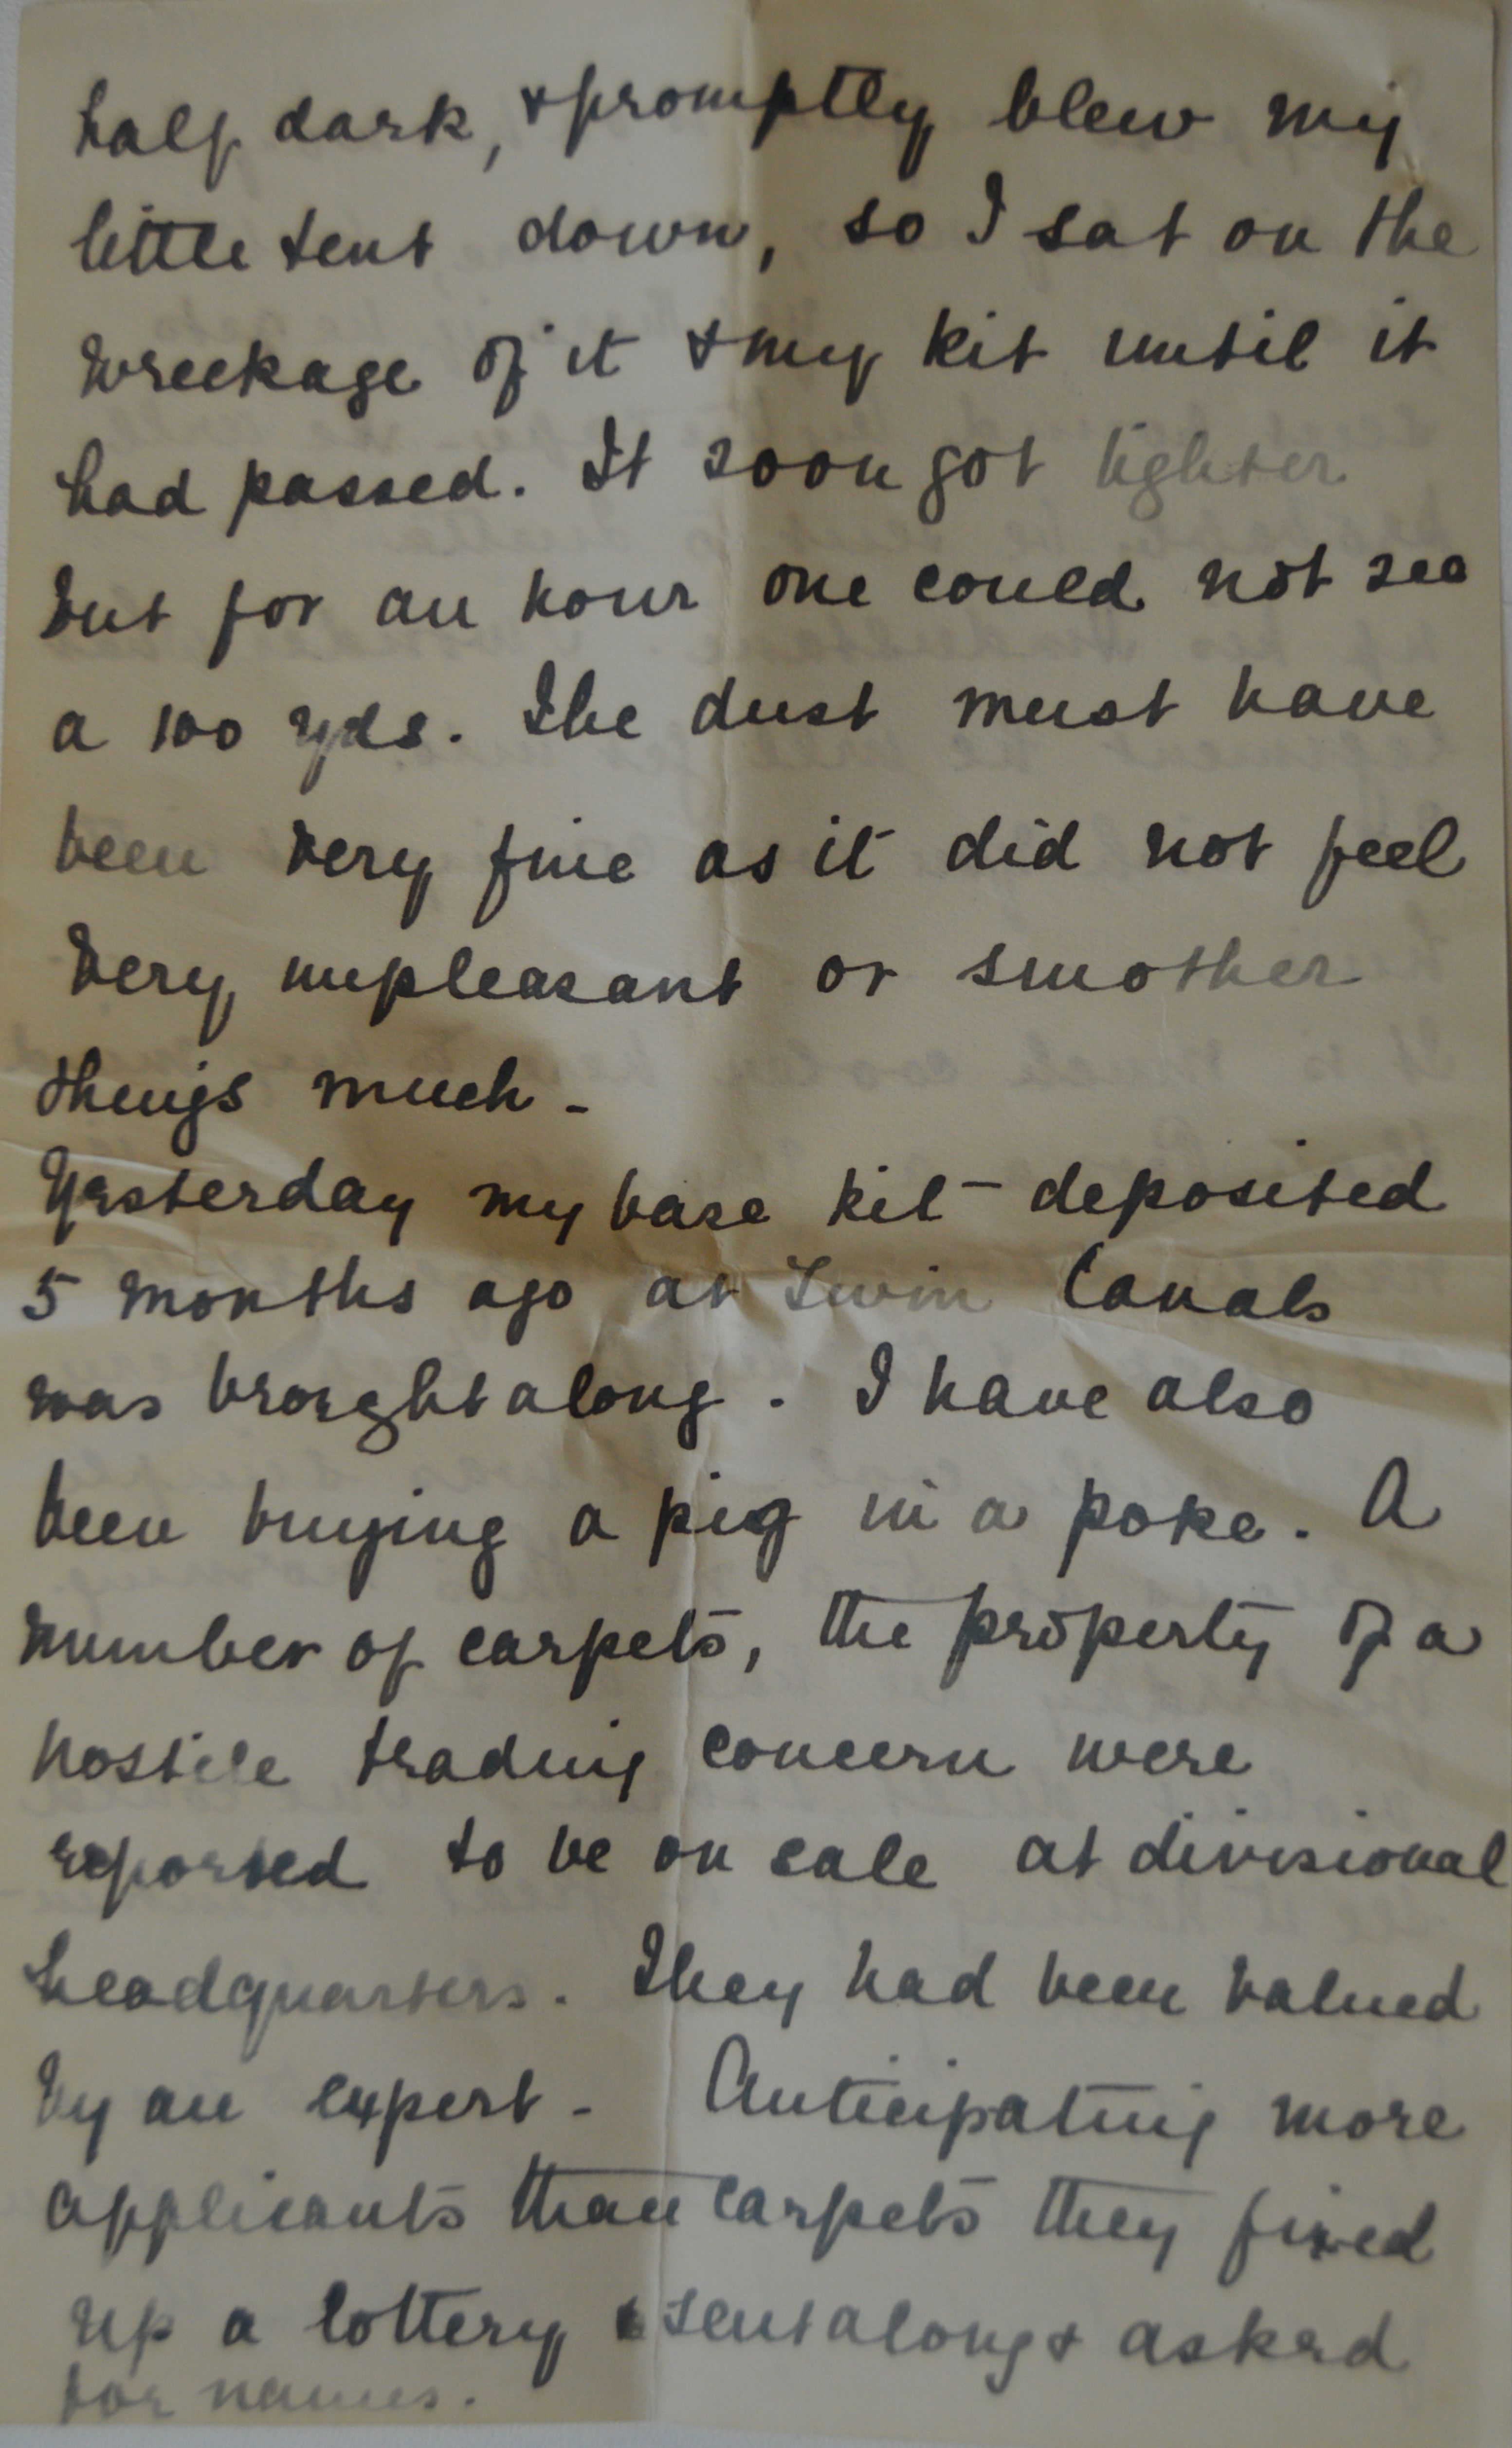 half dark, & promptly blew my
little tent down, so I sat on the
wreckage of it & my kit until it
had passed. It soon got lighter
but for an hour one could not see
a 100 yds. The dust must have
been very fine as it did not feel
very unpleasant or smother
things much -
Yesterday my base kit - deposited
5 months ago at Twin Canals
was brought along. I have also
been buying a pig in a poke. A
number of carpets, the property of a
hostile trading concern were
reported to be on sale at divisional
headquarters. They had been valued
by an expert - Anticipating more
applicants than carpets they fixed
up a lottery sent along & asked
for names.